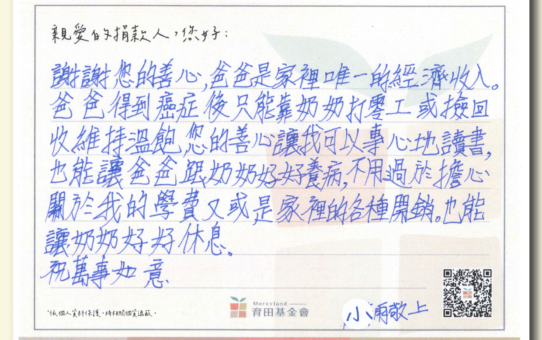 親愛的捐款人，您好：
謝謝您的善心，爸爸是家裡唯一的經濟收入。
爸爸得到癌症後只能靠奶奶打零工或撿回
收維持溫飽，您的善心讓我可以專心地讀書，
也能讓爸爸跟奶奶好好養病，不用過於擔心
關於我的學費又或是家裡的各種開銷。也能
讓奶奶好好休息。
祝萬事如意
小雨敬上
Merryland
育田基金會
*依個人資料保護，